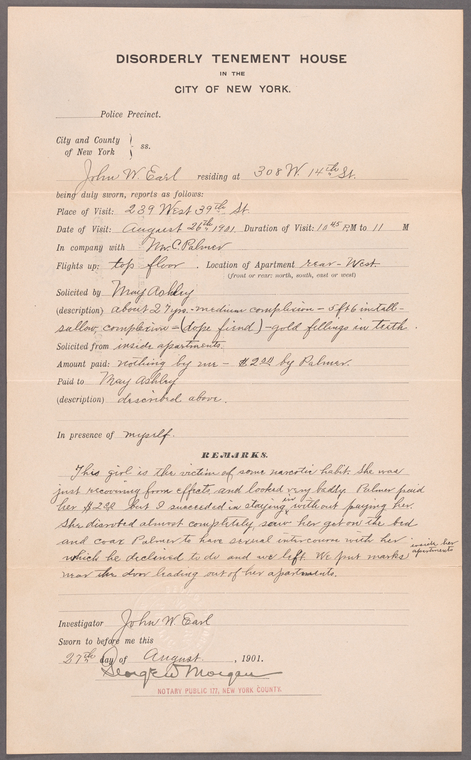 DISORDERLY TENEMENT HOUSE
IN THE
CITY OF NEW YORK.
Police Precinct.
City and County
of New York } ss.
John W. Earl residing at 308 W. 14th St.
being duly sworn, reports as follows:
Place of Visit: 239 West 39th St.
Date of Visit: August 26th 1901. Duration of Visit: 10 45 PM to 11 M
In company with Wm. C. Palmer
Flights up: top floor. Location of Apartment rear - West.
(front or rear: north, south, east or west)
Solicited by May Ashley
(description) about 27 yrs. - medium complexion - 5 ft 6 in tall -
sallow, complexion = (dope fiend) - gold fillings in teeth.
Solicited from inside apartments.
Amount paid: nothing by me - $2.00 by Palmer.
Paid to May Ashley
(description) described above.
In presence of myself.
REMARKS.
This girl is the victim of some narcotic habit. She was
just recovering from effects, and looked very badly. Palmer paid
her $2.00 but I succeeded in staying in without paying her.
She disrobed almost completely, saw her get on the bed
and coax Palmer to have sexual intercourse with her
which he declined to do and we left. We put marks inside her apartments
near the door leading out of her apartments.
Investigator John W. Earl
Sworn to before me this
27th day of August, 1901.
George W Morgan
NOTARY PUBLIC 177, NEW YORK COUNTY.